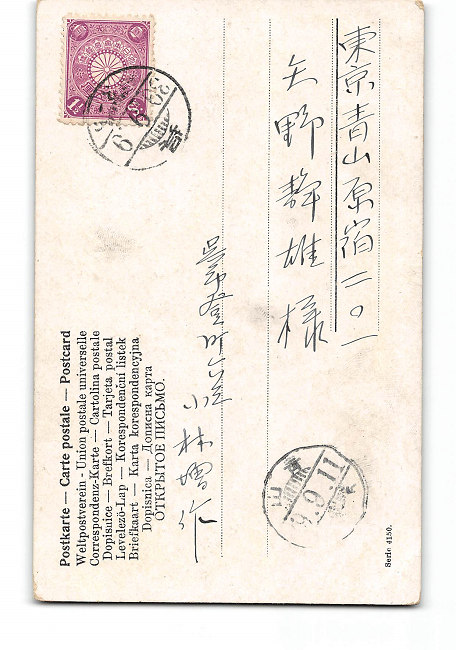 東京青山原宿二〇一
矢野静雄様
呉市登町六丁目
小林増作
Postkarte — Carte postale — Postcard
Weltpostverein - Union postale universelle
Correspondenz-Karte — Cartolina postale
Dopisnice — Brefkort — Tarjeta postal
Levelező-Lap — Korespondenční listek
Briefkaart — Karta korespondencyjna
Dopisnica — Дописна карта
ОТКРЫТОЕ ПИСЬМО.
Serie 4150.